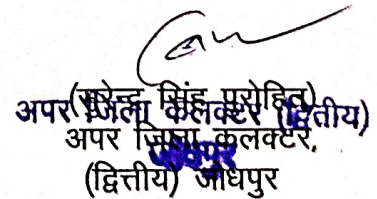 (सुरेन्द्र सिंह पुरोहित)
अपर जिला कलक्टर (द्वितीय)
अपर जिला कलक्टर,
(द्वित्तीय) जोधपुर